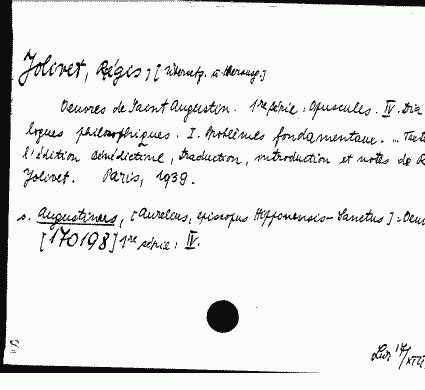 Jolivet, Régis, [Übersetzg. u. Herausg.]
Oeuvres de Saint Augustin. 1re série: Opuscules. IV. Dia
logues philosophiques. I. Problèmes fondamentaux. ... Texte
l'édition bénédictine, traduction, introduction et notes de R
Jolivet. Paris, 1939.
s. Augustinus, [Aurelius, episcopus Hipponensis - Sanctus]: Oeuv
[170198] 1re série: IV.